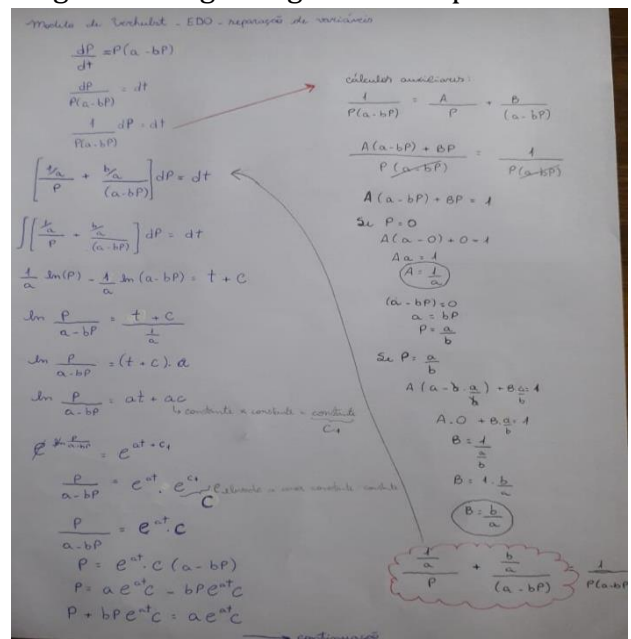 Modelo de Verhulst - EDO - separação de variáveis
dP/dt = P(a - bP)
dP/P(a-bP) = dt
1/P(a-bP) dP = dt
[(1/a)/P + (b/a)/(a-bP)] dP = dt
∫[(1/a)/P + (b/a)/(a-bP)] dP = dt
1/a ln(P) - 1/a ln(a-bP) = t + c
ln P/(a-bP) = (t + c)/(1/a)
ln P/(a-bP) = (t + c). a
ln P/(a-bP) = at + ac
↳ constante x constante = constante
C₁
e^(ln P/(a-bP)) = e^(at + c₁)
P/(a-bP) = e^(at) . e^(c₁)
constante
C
P/(a-bP) = e^(at) . C
P = e^(at) . C (a-bP)
P = a e^(at) C - bP e^(at) C
P + bP e^(at) C = a e^(at) C
→ continuação
cálculos auxiliares:
1/P(a-bP) = A/P + B/(a-bP)
A(a-bP) + BP / P(a-bP) = 1/P(a-bP)
A(a-bP) + BP = 1
Se P = 0
A(a-0) + 0 = 1
Aa = 1
A = 1/a
(a-bP) = 0
a = bP
P = a/b
Se P = a/b
A(a - b.a/b) + B.a/b = 1
A.0 + B.a/b = 1
B = 1/(a/b)
B = 1.b/a
B = b/a
(1/a)/P + (b/a)/(a-bP) 1/P(a-bP)